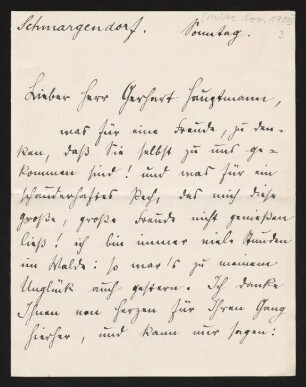 Schmargendorf. Sonntag.
3
Lieber Herr Gerhart Hauptmann,
was für eine Freude, zu den-
ken, daß Sie selbst zu uns ge-
kommen sind! und was für ein
schauderhaftes Pech, das mich diese
große, große Freude nicht genießen
ließ! ich bin immer viele Stunden
im Walde: so war's zu meinem
Unglück auch gestern. Ich danke
Ihnen von Herzen für Ihren Gang
hierher, und kann nur sagen: